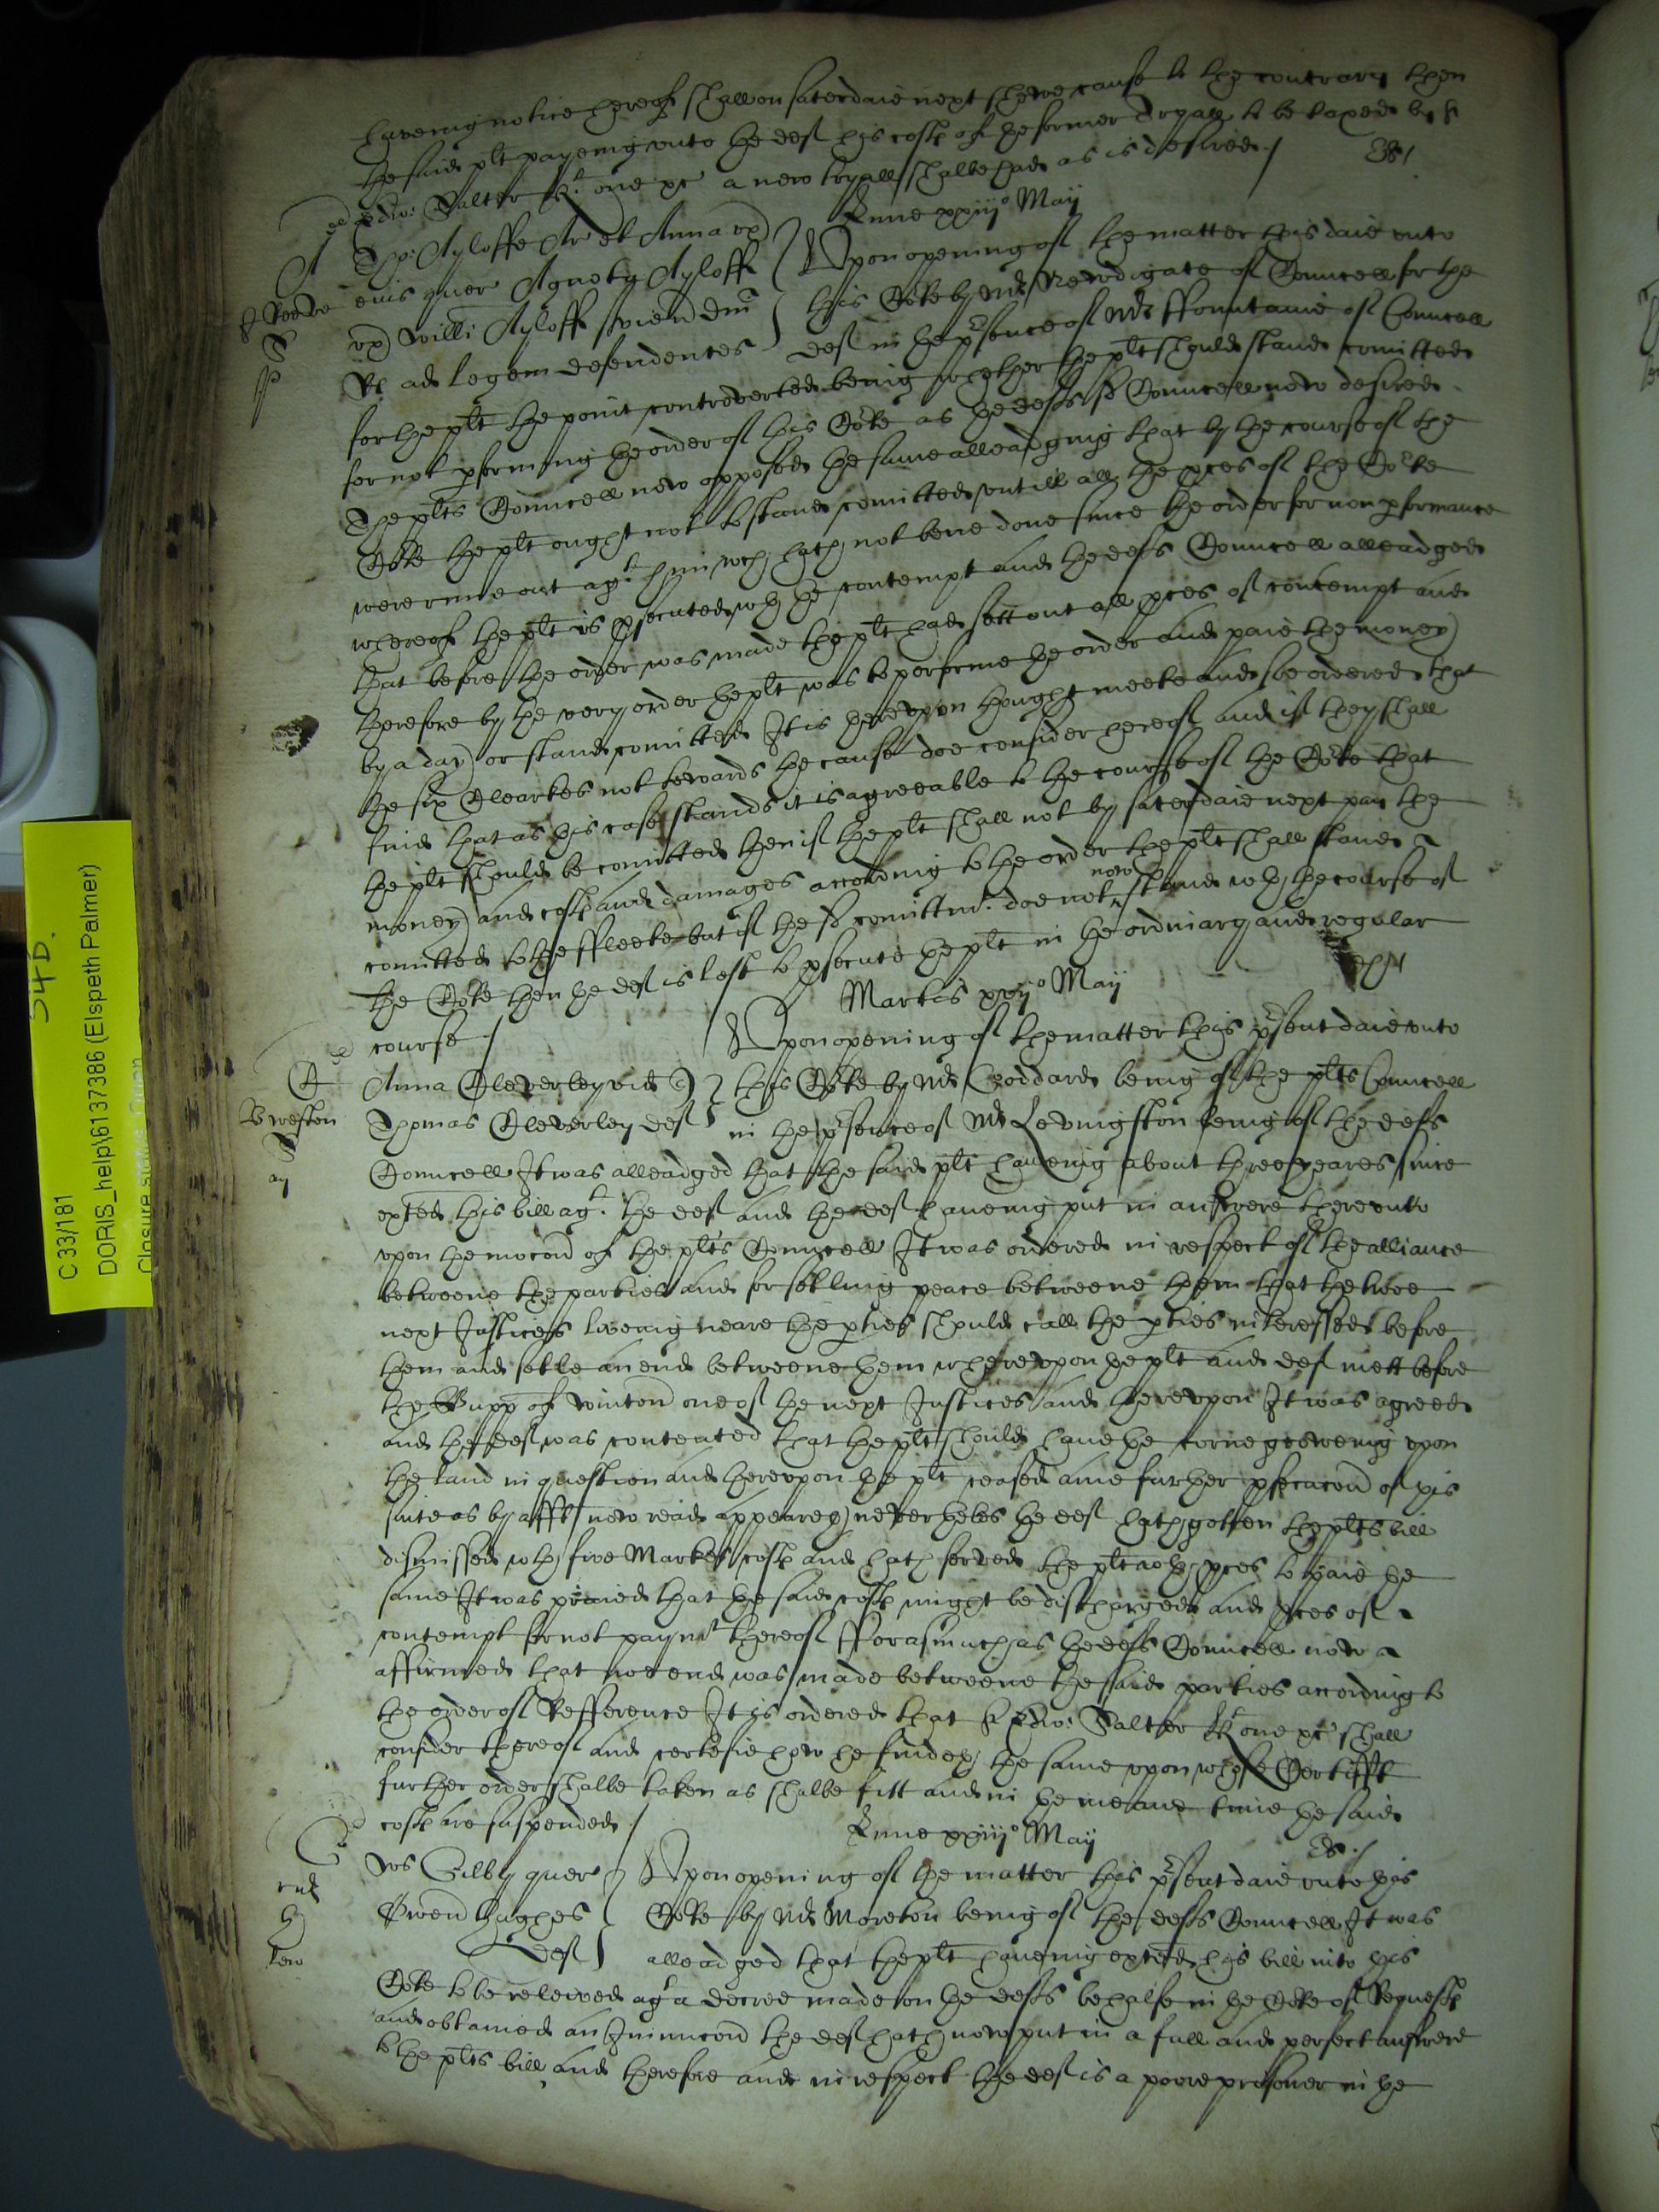 haveing notice hereof shall on saterdaie next shewe cause to the contrary then
the said plt payeing unto the def his costs of the former tryall to be taxed by Sr
Edw: Salter kt one &c a new tryall shalbe had as is desired /
Lune xxiijo Maij
Tho: Ayloffe Ar et Anna ux
eius quer Agneta Ayloffe
ux Willi Ayloffe
ad legem defendentes
Upon opening of the matter this daie unto
this Cort by Mr Newdigate of Councell for the
def in the prsence of Mr ffountaine of Councell
for the plt the point controverted being whether the plt should stand comitted
for not pforming the order of this Cort as the defts sd Councell now desired
The plts Councell now opposed the same alleadging that by the course of the
Cort the plt ought not to stand comitted untill all the pces of the Corte
were runne out agt him wch hath not bene done since the order for non pformance
whereof the plt is psecuted wth the contempt and the defts Councell alleadged
that before the order was made the plt had sett out all pces of contempt and
therefore by the very order the plt was to performe the order and paie the money
by a day or stand comitted It is thereupon thought meete and soe ordered that
the six Clearkes not towards the cause doe consider hereof and if they shall
find that as this case stands it is agreeable to the course of the Cort that
the plt should be comitted then if the plt shall not by saterdaie next pay the
money and costs and damages according to the order the plt shall stand
comitted to the ffleete but if the sd comittmt doe not now stand wth the course of
the Cort then the def is left to psecute the plt in the ordinary and regular
course /
Martis xxvijo Maij
Anna Cleverley vid
Thomas Cleverley def
Upon opening of the matter this prsent daie unto
this Cort by Mr Goddard being of the plts Councell
in the prsence of Mr Levingston being of the defts
Councell It was alleadged that the said plt haveing about three yeares since
exhted his bill agt the def and the def haveing put in answere thereunto
upon the mocon of the plts Councell It was ordered in respect of the alliance
betweene the parties and for setling peace betweene them that the twoe
next Justices liveing neare the pties should call the pties interessed before
them and settle an end betweene them whereupon the plt and def mett before
the Bupp of Winton one of the next Justices and thereupon It was agreed
and the def was contented that the plt should have the corne groweing upon
the land in question and thereupon the plt ceased anie further psecucon of his
suite as by afft now read appeareth neverthelesse the def hath gotten the plts bill
dismissed wth five Markes costs and hath served the plt wth pces to paie the
same It was praied that the said costs might be discharged and pces of
contempt for not paymt thereof fforasmuch as the defts Councell now
affirmed that noe end was made betweene the said parties according to
the order of Refference It is ordered that Sr Edw: Salter kt one &c shall
consider thereof and certefie how he findeth the same upon whose Certifft
further order shalbe taken as shalbe fitt and in the meane time the said
costs are suspended /
Lune xxiijo Maij
Gilby quer
Owen Hughes
def
Upon opening of the matter this prsent daie unto this
Cort by Mr Moreton being of the defts Councell It was
alleadged that the plt haveing exhted his bill into this
Cort to be releived agt a decree made on the defts behalfe in the Cort of Requests
and obtained an Iniunccon the def hath now put in a full and perfect answere
to the plts bill and therefore and in respect the def is a poore prisoner in the
C 33/181
DORIS_help\6137386 (Elspeth Palmer)
Closure status: Open